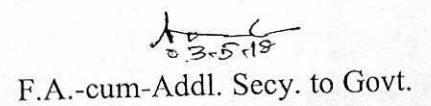 03-5-18
F.A.-cum-Addl. Secy. to Govt.